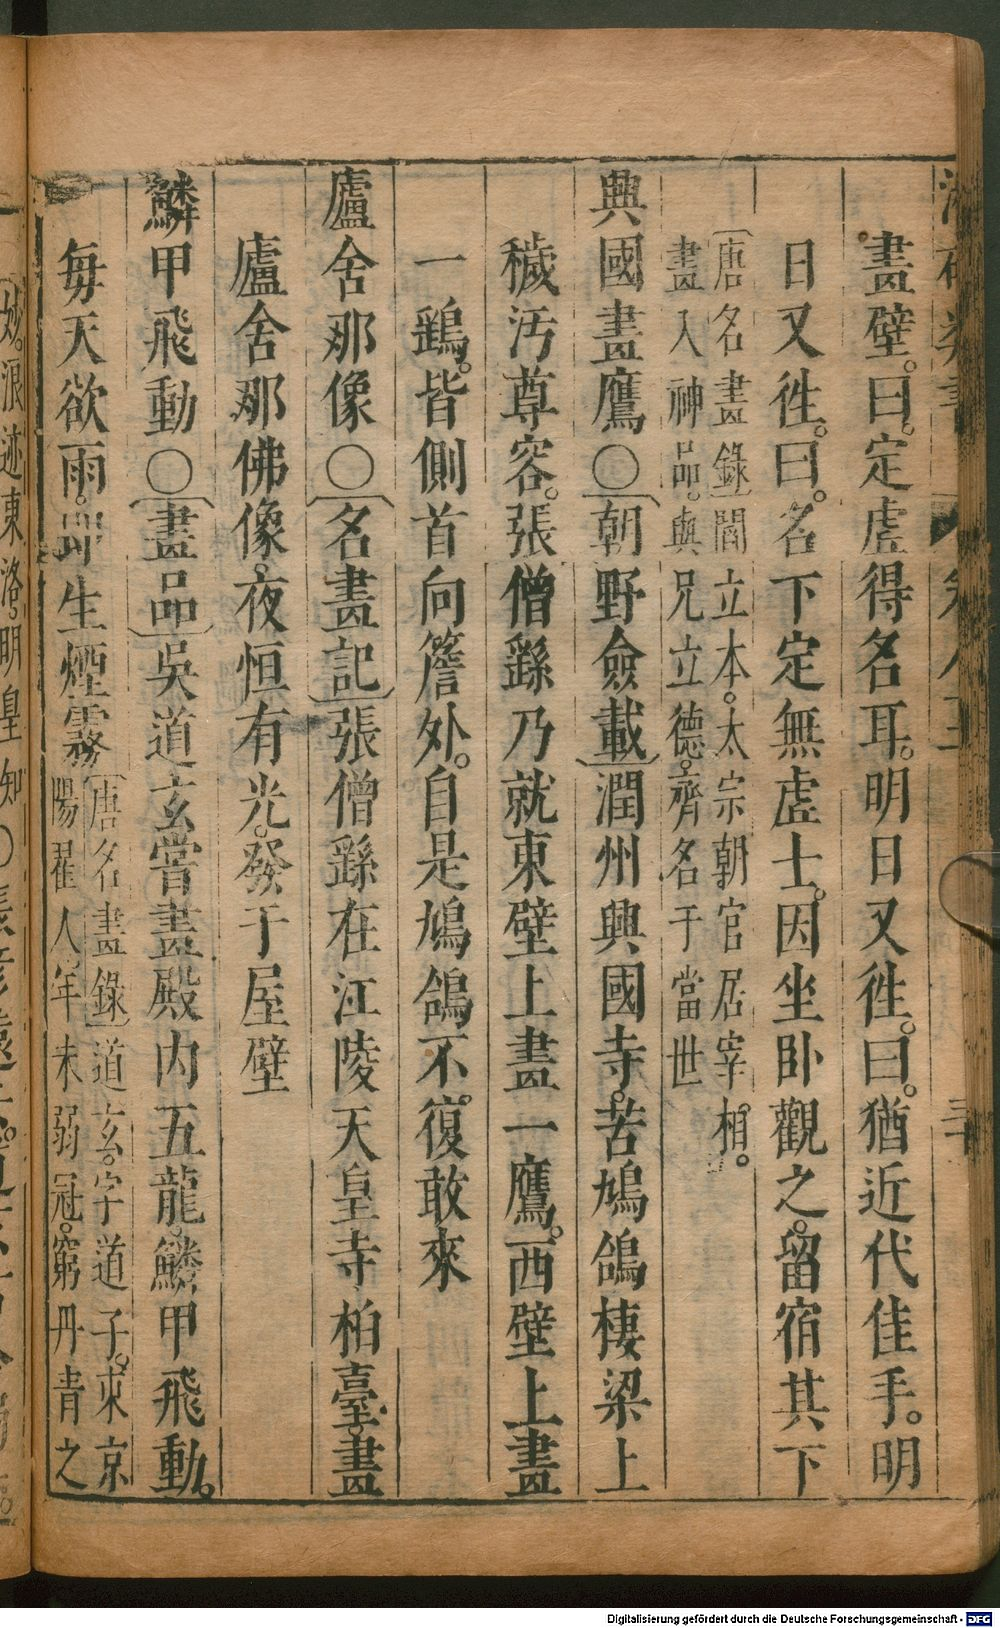 畫壁。曰。定虛得名耳。明日又徃。曰。猶近代佳手。明
日又徃。曰。名下定無虛士。因坐卧觀之。留宿其下
〔唐名畫錄〕閻立本。太宗朝官居宰相。
畫入神品。與兄立德。齊名于當世
興國畫鷹○〔朝野僉載〕潤州興國寺。苦鳩鴿棲梁上
穢汚尊容。張僧繇乃就東壁上畫一鷹。西壁上畫
一鷂。皆側首向簷外。自是鳩鴿不復敢來
廬舍那像○〔名畫記〕張僧繇在江陵天皇寺柏臺。畫
廬舍那佛像。夜恒有光。發于屋壁
鱗甲飛動○〔畫品〕吳道玄嘗畫殿内五龍。鱗甲飛動。
每天欲雨。即生煙霧
〔唐名畫錄〕道玄。字道子。東京
陽翟人。年未弱冠。窮丹青之
妙。浪迹東洛。明皇知
Digitalisierung gefördert durch die Deutsche Forschungsgemeinschaft - DFG